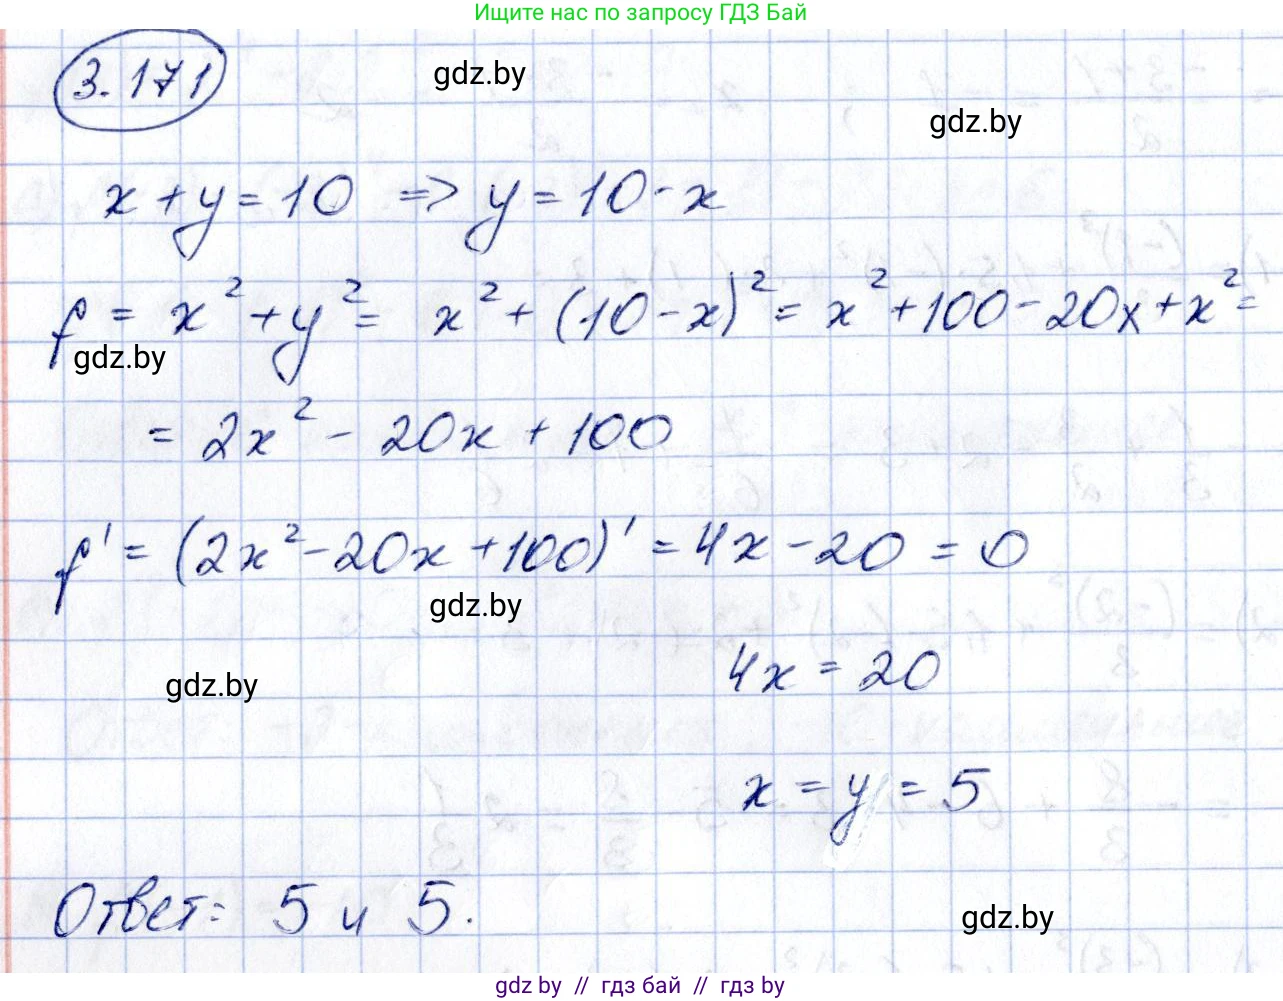 Ищите нас по запросу ГДЗ Бай
3.171
gdz.by
gdz.by
x + y = 10 => y = 10 - x
f = x² + y² = x² + (10 - x)² = x² + 100 - 20x + x² =
gdz.by
= 2x² - 20x + 100
f' = (2x² - 20x + 100)' = 4x - 20 = 0
gdz.by
4x = 20
gdz.by
x = y = 5
Ответ: 5 и 5.
gdz.by
gdz.by // гдз бай // гдз by